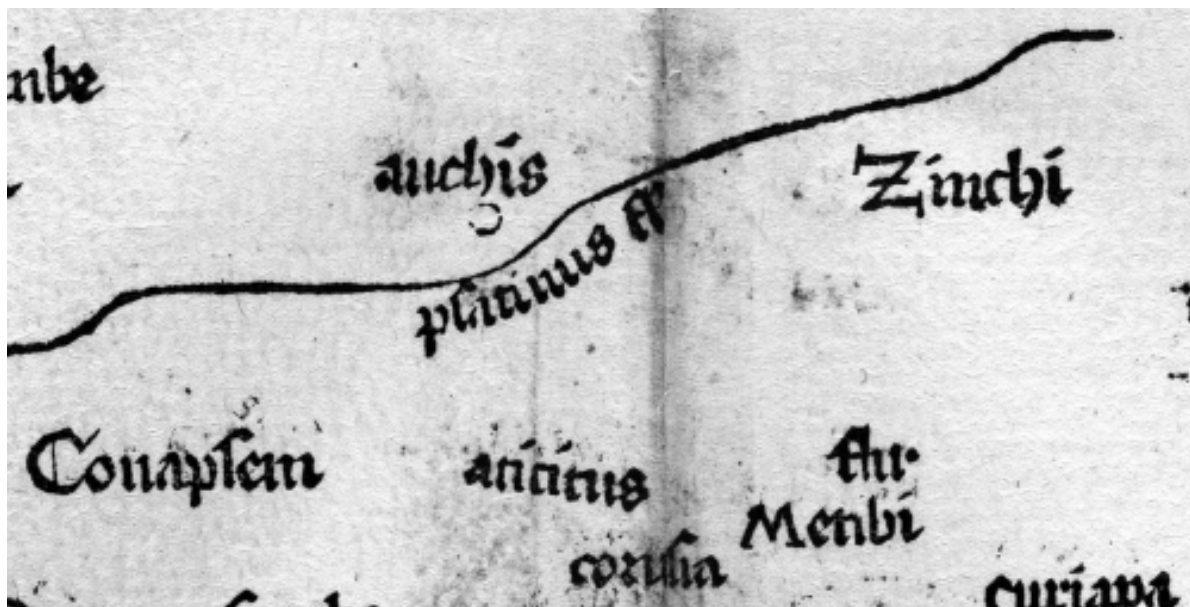 nbe
auchis
Zinchi
psatinus fl'
Conapseni
aticitus
flu·
Metibi
corusia
curiapa